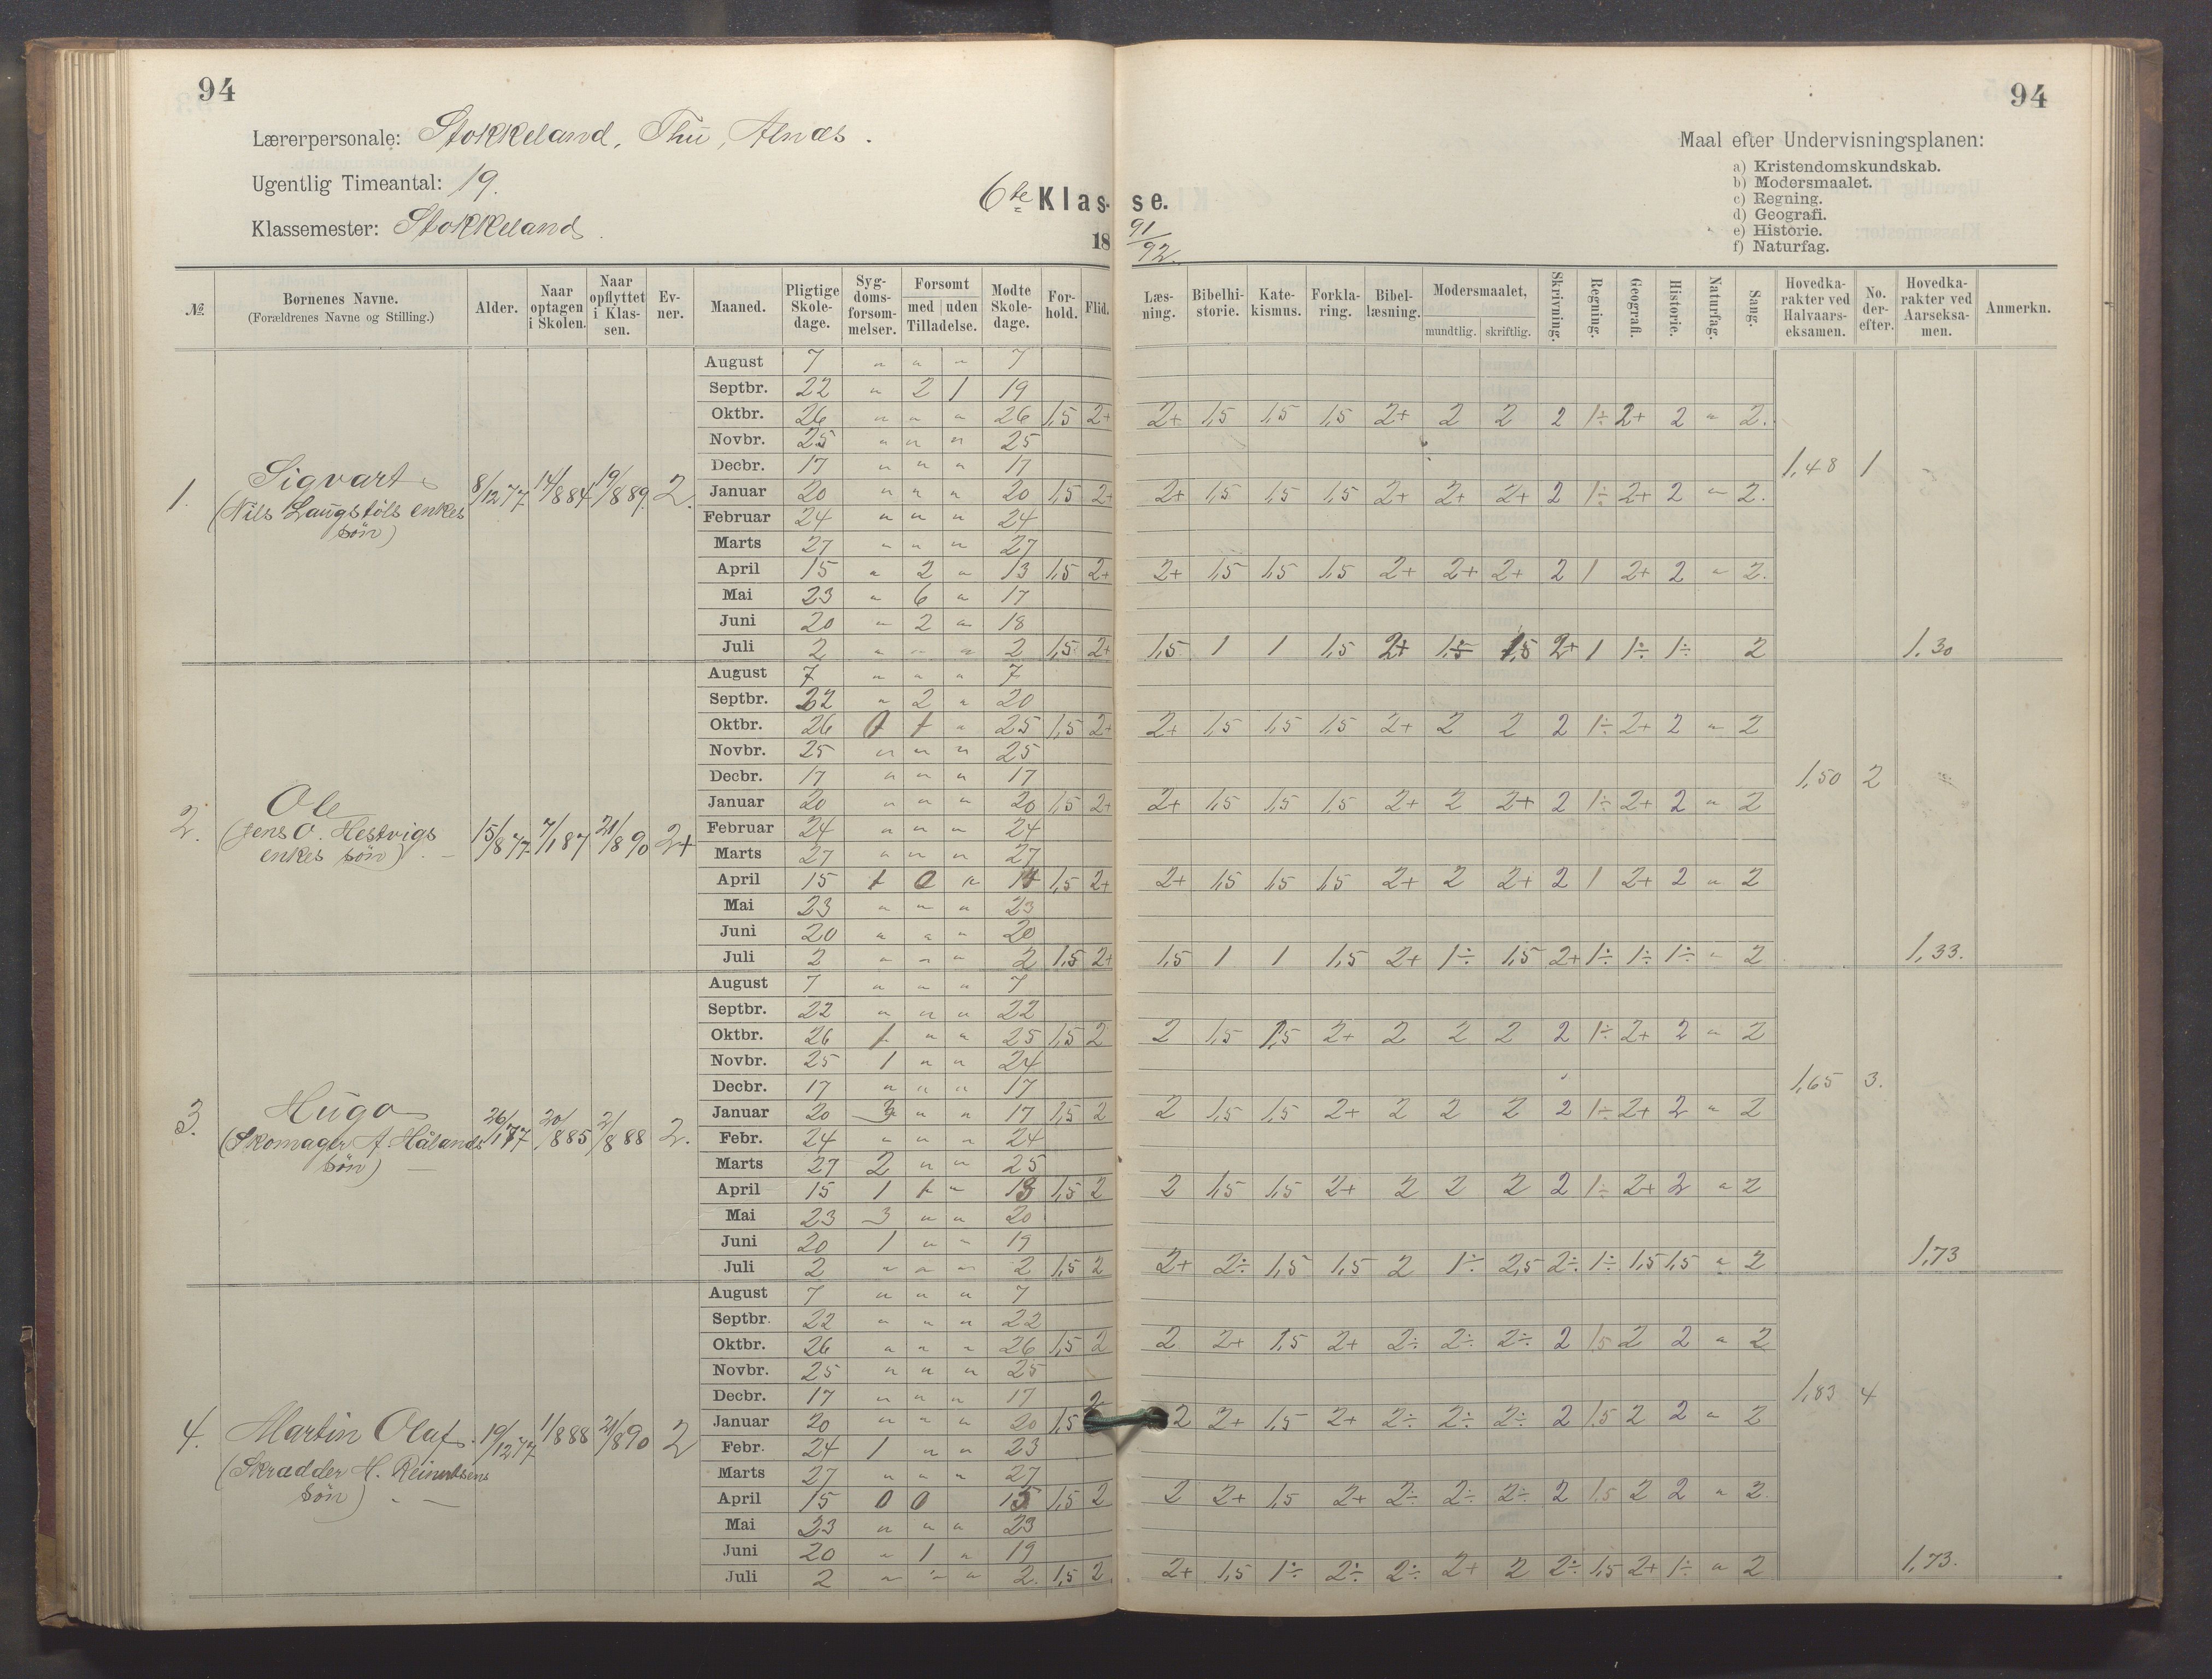 94
94
Lærerpersonale: Stokkeland, Thu, Alnæs.
Ugentlig Timeantal: 19.
Klassemester: Stokkeland.
6te Klasse.
18 91/92.
Maal efter Undervisningsplanen:
a) Kristendomskundskab.
b) Modersmaalet.
c) Regning.
d) Geografi.
e) Historie.
f) Naturfag.
№ | Bornenes Navne. (Forældrenes Navne og Stilling.) | Alder. | Naar optagen i Skolen. | Naar opflyttet i Klassen. | Evner. | Maaned. | Pligtige Skoledage. | Sygdomsforsommelser. | Forsomt med uden Tilladelse. | Modte Skoledage. | Forhold. | Flid. | Læsning. | Bibelhistorie. | Katekismus. | Forklaring. | Bibellæsning. | Modersmaalet, mundtlig. skriftlig. | Skrivning. | Regning. | Geografi. | Historie. | Naturfag. | Sang. | Hovedkarakter ved Halvaarseksamen. | No. derefter. | Hovedkarakter ved Aarseksamen. | Anmerkn.
1. Sigvart (Nils Laugstöls enkes sön) 8/12 77 14/8 84 19/8 89. 2.
August 7 " " " 7
Septbr. 22 " 2 1 19
Oktbr. 26 " " " 26 1,5 2+ 2+ 1,5 1,5 1,5 2+ 2 2 2 1÷ 2+ 2 " 2.
Novbr. 25 " " " 25
Decbr. 17 " " " 17 1,48 1
Januar 20 " " " 20 1,5 2+ 2+ 1,5 1,5 1,5 2+ 2+ 2+ 2 1÷ 2+ 2 " 2.
Februar 24 " " " 24
Marts 27 " " " 27
April 15 " 2 " 13 1,5 2+ 2+ 1,5 1,5 1,5 2+ 2+ 2+ 2 1 2+ 2 " 2.
Mai 23 " 6 " 17
Juni 20 " 2 " 18
Juli 2 " " " 2 1,5 2+ 1,5 1 1 1,5 2+ 1,5 1,5 2+ 1 1÷ 1÷ 2 1,30
2. Ole (Jens O. Hestvigs enkes sön) 15/8 77 7/1 87 21/8 90 2+
August 7 " " " 7
Septbr. 22 " 2 " 20
Oktbr. 26 " 25 1,5 2+ 2+ 1,5 1,5 1,5 2+ 2 2 2 1÷ 2+ 2 " 2
Novbr. 25 " " " 25
Decbr. 17 " " " 17 1,50 2
Januar 20 " " " 20 1,5 2+ 2+ 1,5 1,5 1,5 2+ 2 2+ 2 1÷ 2+ 2 " 2
Februar 24 " " " 24
Marts 27 " " " 27
April 15 1 0 " 14 1,5 2+ 2+ 1,5 1,5 1,5 2+ 2 2+ 2 1 2+ 2 " 2
Mai 23 " " " 23
Juni 20 " " " 20
Juli 2 " " " 2 1,5 2+ 1,5 1 1 1,5 2+ 1÷ 1,5 2+ 1÷ 1÷ 1÷ " 2 1,33.
3. Hugo (Skomager A. Hålands sön) 26/1 77 20/8 85 2/8 88 2.
August 7 " " " 7
Septbr. 22 " " " 22
Oktbr. 26 1 " " 25 1,5 2 2 1,5 1,5 2+ 2 2 2 2 1÷ 2+ 2 " 2
Novbr. 25 1 " " 24
Decbr. 17 " " " 17 1,65 3.
Januar 20 3 " " 17 1,5 2 2 1,5 1,5 2+ 2 2 2 2 1÷ 2+ 2 " 2
Febr. 24 " " " 24
Marts 27 2 " " 25
April 15 1 1 " 13 1,5 2 2 1,5 1,5 2+ 2 2 2 2 1÷ 2+ 2 " 2
Mai 23 3 " " 20
Juni 20 1 " " 19
Juli 2 " " " 2 1,5 2 2+ 2÷ 1,5 1,5 2 1÷ 2,5 2÷ 1÷ 1,5 1,5 " 2 1,73
4. Martin Olaf. (Skradder H. Reinertsens sön) 19/12 77 1/8 88 21/8 90 2
August 7 " " " 7
Septbr. 22 " " " 22
Oktbr. 26 " " " 26 1,5 2 2 2+ 1,5 2+ 2÷ 2÷ 2÷ 2 1,5 2 2 " 2
Novbr. 25 " " " 25
Decbr. 17 " " " 17 1,83 4
Januar 20 " " " 20 1,5 2 2 2+ 1,5 2+ 2÷ 2÷ 2÷ 2 1,5 2 2 " 2
Febr. 24 1 " " 23
Marts 27 " " " 27
April 15 0 0 15 1,5 2 2 2+ 1,5 2+ 2÷ 2÷ 2÷ 2 1,5 2 2 " 2.
Mai 23 " " " 23
Juni 20 " 1 " 19
Juli 2 " " " 2. 1,5 2 2+ 1,5 1÷ 2÷ 2÷ 2+ 2 2÷ 1,5 2+ 1÷ " 2 1,73.